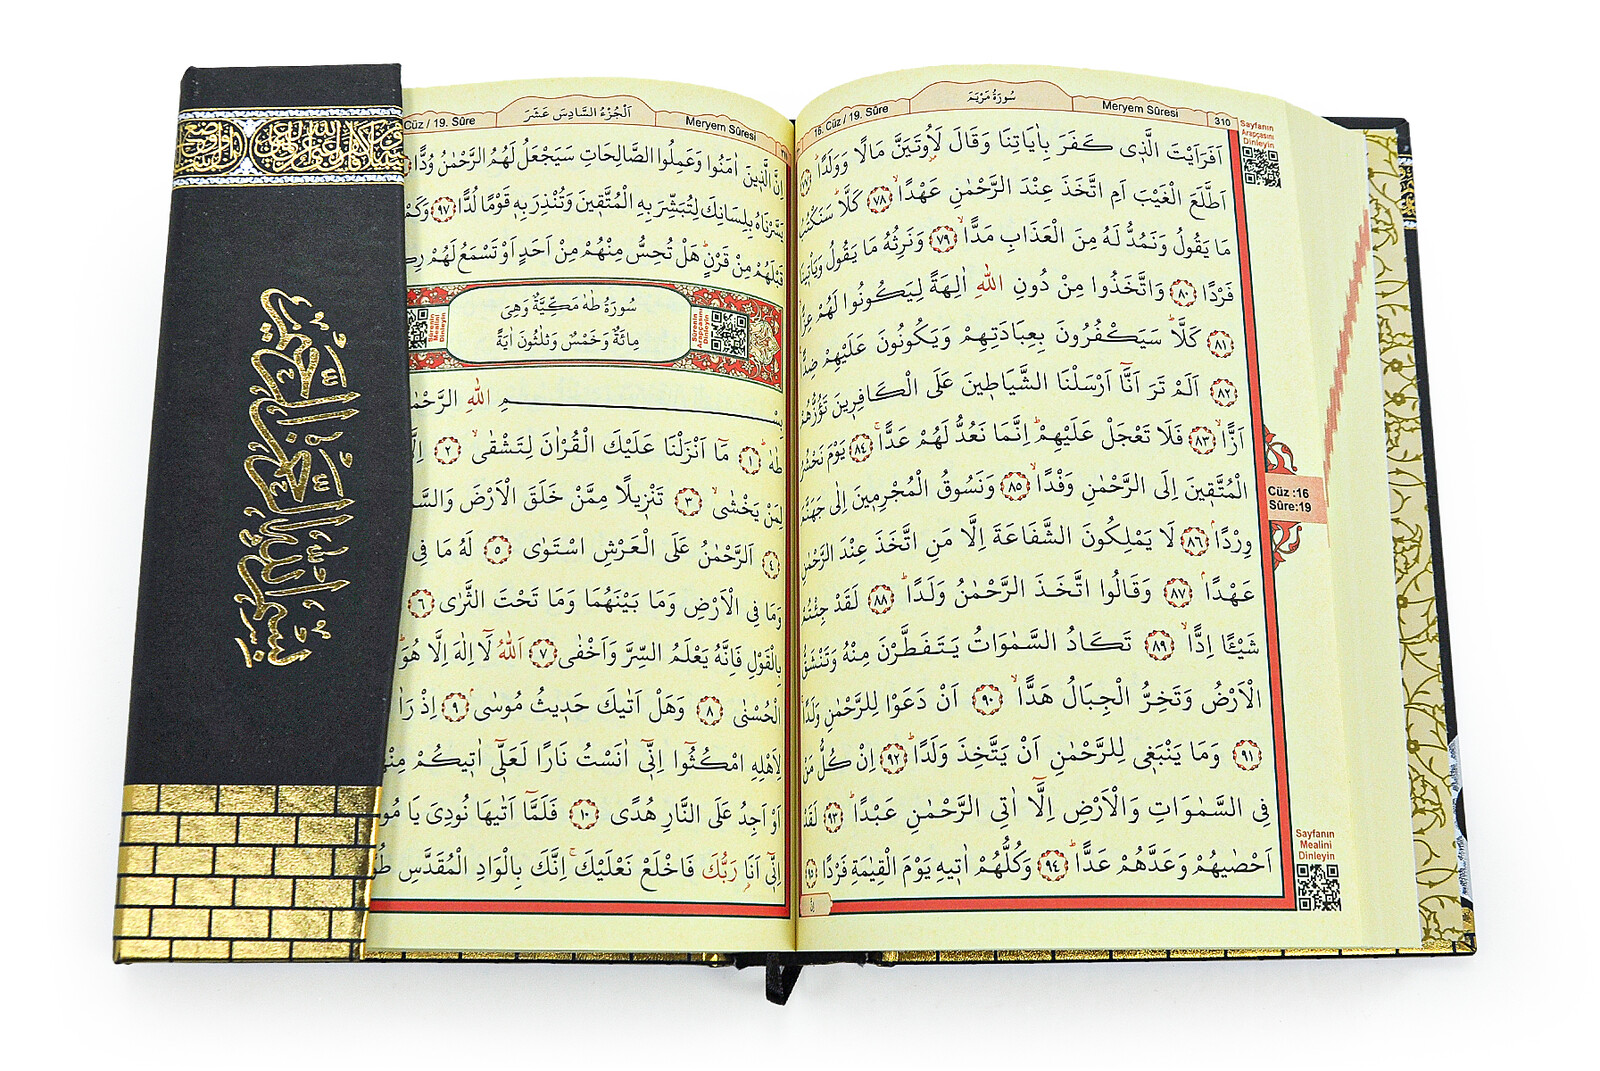 16. Cüz / 19. Sûre
سُورَةُ مَرْيَمَ
Meryem Sûresi
310
Sayfanın
Arapçasını
Dinleyin
اَفَرَاَيْتَ الَّذٖى كَفَرَ بِاٰيَاتِنَا وَقَالَ لَاُوتَيَنَّ مَالًا وَوَلَدًا ﴿٧٧﴾
اَطَّلَعَ الْغَيْبَ اَمِ اتَّخَذَ عِنْدَ الرَّحْمٰنِ عَهْدًا ﴿٧٨﴾ كَلَّا سَنَكْتُبُ
مَا يَقُولُ وَنَمُدُّ لَهُ مِنَ الْعَذَابِ مَدًّا ﴿٧٩﴾ وَنَرِثُهُ مَا يَقُولُ وَيَأْتٖينَا
فَرْدًا ﴿٨٠﴾ وَاتَّخَذُوا مِنْ دُونِ اللّٰهِ اٰلِهَةً لِيَكُونُوا لَهُمْ عِزًّا
﴿٨١﴾ كَلَّا سَيَكْفُرُونَ بِعِبَادَتِهِمْ وَيَكُونُونَ عَلَيْهِمْ ضِدًّا
﴿٨٢﴾ اَلَمْ تَرَ اَنَّا اَرْسَلْنَا الشَّيَاطٖينَ عَلَى الْكَافِرٖينَ تَؤُزُّهُمْ
اَزًّا ﴿٨٣﴾ فَلَا تَعْجَلْ عَلَيْهِمْ اِنَّمَا نَعُدُّ لَهُمْ عَدًّا ﴿٨٤﴾ يَوْمَ نَحْشُرُ
الْمُتَّقٖينَ اِلَى الرَّحْمٰنِ وَفْدًا ﴿٨٥﴾ وَنَسُوقُ الْمُجْرِمٖينَ اِلٰى جَهَنَّمَ
وِرْدًا ﴿٨٦﴾ لَا يَمْلِكُونَ الشَّفَاعَةَ اِلَّا مَنِ اتَّخَذَ عِنْدَ الرَّحْمٰنِ
عَهْدًا ﴿٨٧﴾ وَقَالُوا اتَّخَذَ الرَّحْمٰنُ وَلَدًا ﴿٨٨﴾ لَقَدْ جِئْتُمْ
شَيْـًٔا اِدًّا ﴿٨٩﴾ تَكَادُ السَّمٰوَاتُ يَتَفَطَّرْنَ مِنْهُ وَتَنْشَقُّ
الْاَرْضُ وَتَخِرُّ الْجِبَالُ هَدًّا ﴿٩٠﴾ اَنْ دَعَوْا لِلرَّحْمٰنِ وَلَدًا
﴿٩١﴾ وَمَا يَنْبَغٖى لِلرَّحْمٰنِ اَنْ يَتَّخِذَ وَلَدًا ﴿٩٢﴾ اِنْ كُلُّ مَنْ
فِى السَّمٰوَاتِ وَالْاَرْضِ اِلَّا اٰتِى الرَّحْمٰنِ عَبْدًا ﴿٩٣﴾ لَقَدْ
اَحْصٰيهُمْ وَعَدَّهُمْ عَدًّا ﴿٩٤﴾ وَكُلُّهُمْ اٰتٖيهِ يَوْمَ الْقِيٰمَةِ فَرْدًا ﴿٩٥﴾
Cüz :16
Sûre:19
Sayfanın
Mealini
Dinleyin
Cüz / 19. Sûre
اَلْجُزْءُ السَّادِسَ عَشَرَ
Meryem Sûresi
اِنَّ الَّذٖينَ اٰمَنُوا وَعَمِلُوا الصَّالِحَاتِ سَيَجْعَلُ لَهُمُ الرَّحْمٰنُ وُدًّا
يَسَّرْنَاهُ بِلِسَانِكَ لِتُبَشِّرَ بِهِ الْمُتَّقٖينَ وَتُنْذِرَ بِهٖ قَوْمًا لُدًّا ﴿٩٧﴾ وَكَمْ
قَبْلَهُمْ مِنْ قَرْنٍ هَلْ تُحِسُّ مِنْهُمْ مِنْ اَحَدٍ اَوْ تَسْمَعُ لَهُمْ
سُورَةُ طٰهٰ مَكِّيَّةٌ وَهِىَ
مِائَةٌ وَخَمْسٌ وَثَلٰثُونَ اٰيَةً
Sûrenin
Arapçasını
Dinleyin
Sûrenin
Mealini
Dinleyin
بِسْمِ اللّٰهِ الرَّحْمٰنِ
طٰهٰ ﴿١﴾ مَا اَنْزَلْنَا عَلَيْكَ الْقُرْاٰنَ لِتَشْقٰى ﴿٢﴾
لِمَنْ يَخْشٰى ﴿٣﴾ تَنْزٖيلًا مِمَّنْ خَلَقَ الْاَرْضَ
﴿٤﴾ اَلرَّحْمٰنُ عَلَى الْعَرْشِ اسْتَوٰى ﴿٥﴾ لَهُ مَا فِى
وَمَا فِى الْاَرْضِ وَمَا بَيْنَهُمَا وَمَا تَحْتَ الثَّرٰى ﴿٦﴾
بِالْقَوْلِ فَاِنَّهُ يَعْلَمُ السِّرَّ وَاَخْفٰى ﴿٧﴾ اَللّٰهُ لَا اِلٰهَ اِلَّا هُوَ
الْحُسْنٰى ﴿٨﴾ وَهَلْ اَتٰيكَ حَدٖيثُ مُوسٰى ﴿٩﴾ اِذْ رَاٰ
لِاَهْلِهِ امْكُثُوا اِنّٖى اٰنَسْتُ نَارًا لَعَلّٖى اٰتٖيكُمْ مِنْهَا
اَوْ اَجِدُ عَلَى النَّارِ هُدًى ﴿١٠﴾ فَلَمَّا اَتٰيهَا نُودِىَ يَا
اِنّٖى اَنَا رَبُّكَ فَاخْلَعْ نَعْلَيْكَ اِنَّكَ بِالْوَادِ الْمُقَدَّسِ
بسم الله الرحمن الرحيم